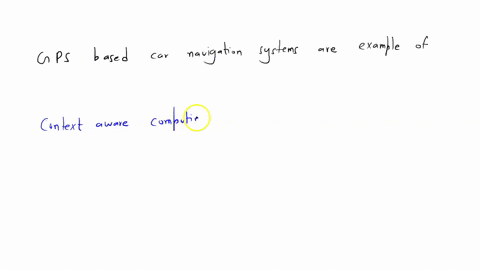 GPS based car navigation systems are example of
Context aware computie